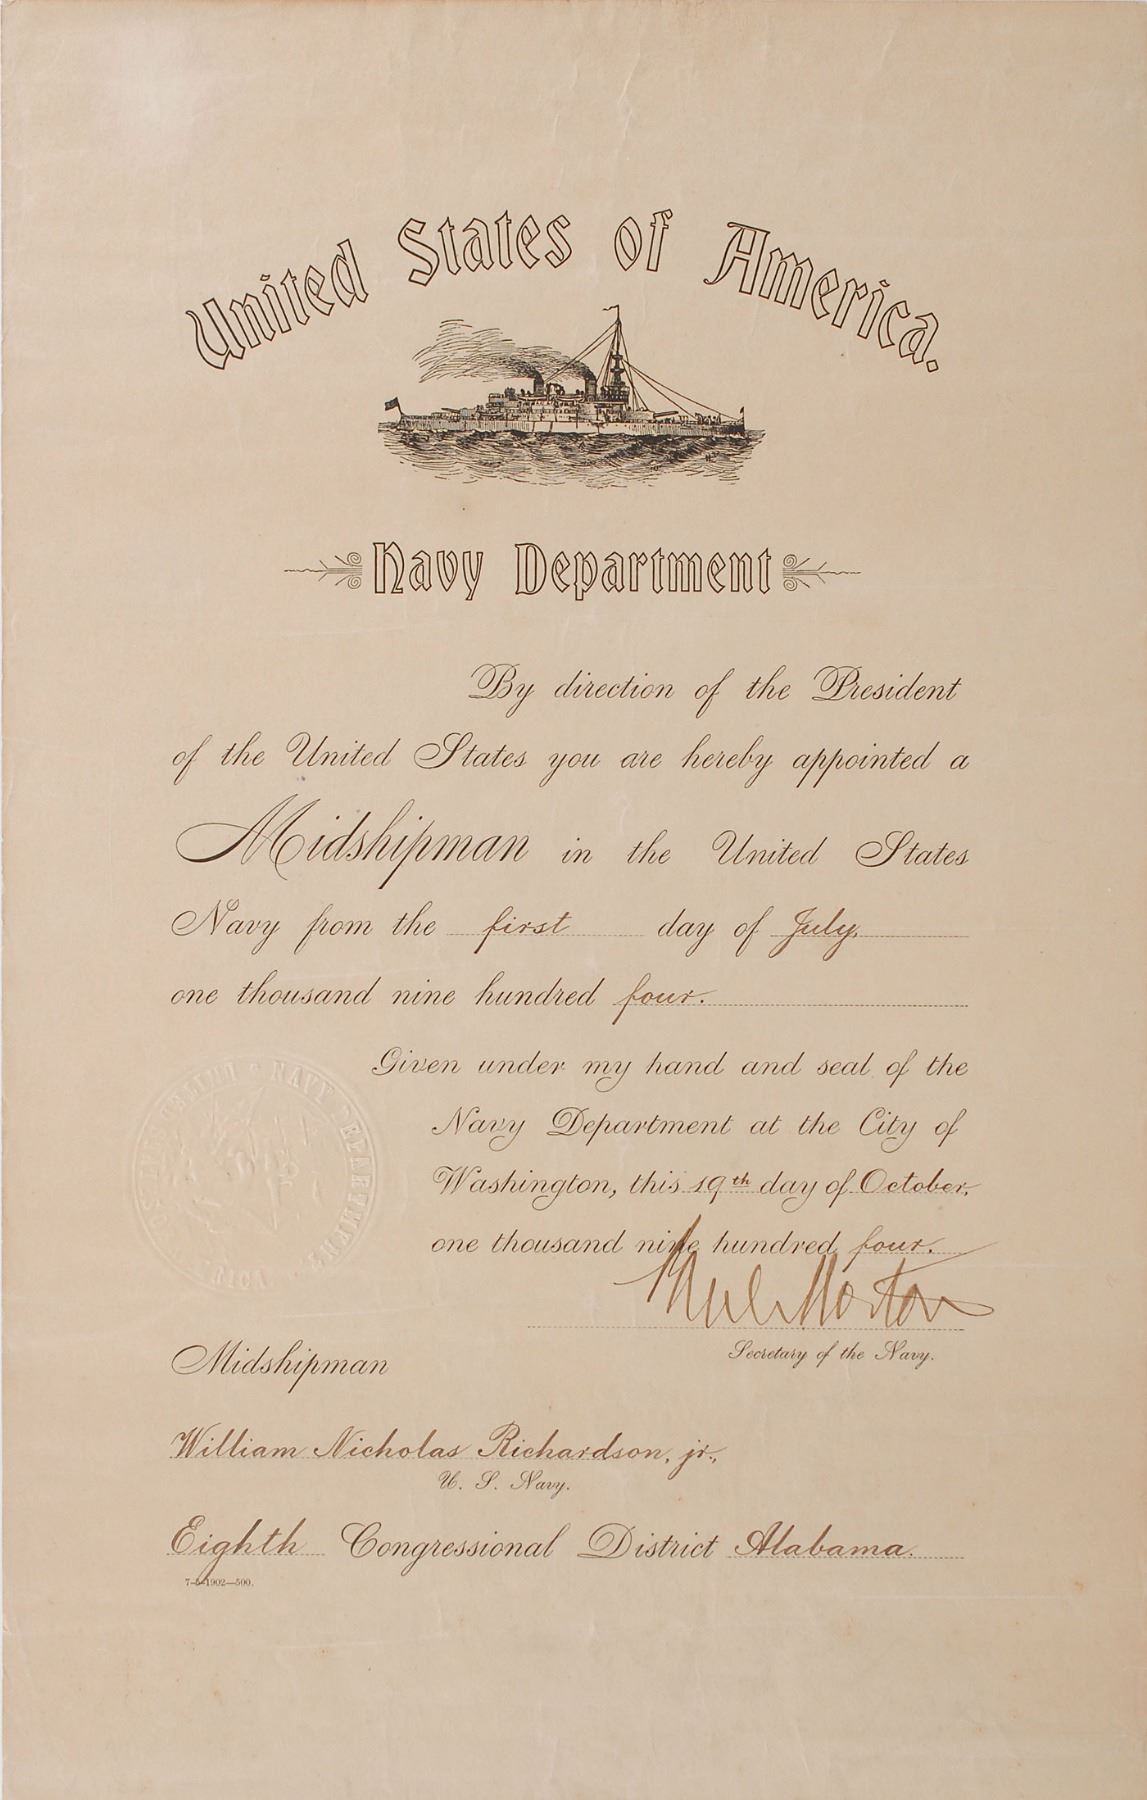 United States of America.
Navy Department
By direction of the President
of the United States you are hereby appointed a
Midshipman in the United States
Navy from the first day of July,
one thousand nine hundred four.
Given under my hand and seal of the
Navy Department at the City of
Washington, this 19th day of October,
one thousand nine hundred four.
Paul Morton
Secretary of the Navy.
NAVY DEPARTMENT
Midshipman
William Nicholas Richardson, jr.,
U. S. Navy.
Eighth Congressional District Alabama.
7-5-1902—500.